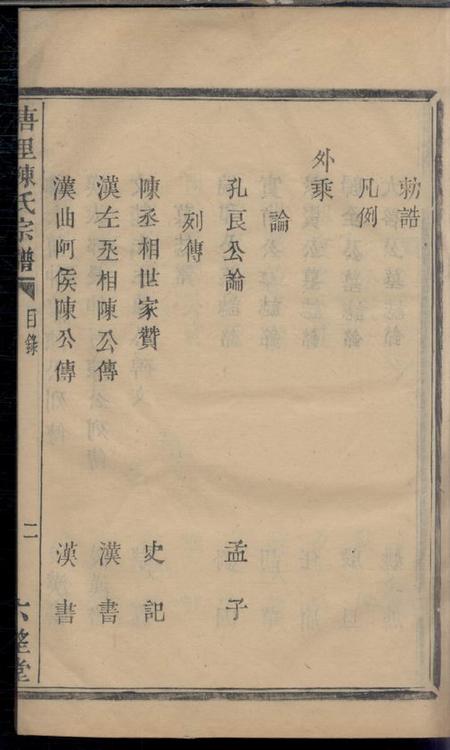 勅誥
凡例
外乘
論
孔良公論 孟子
列傳
陳丞相世家贊 史記
漢左丞相陳公傳 漢書
漢曲阿侯陳公傳 漢書
里陳氏宗譜 目錄 二 六 堂